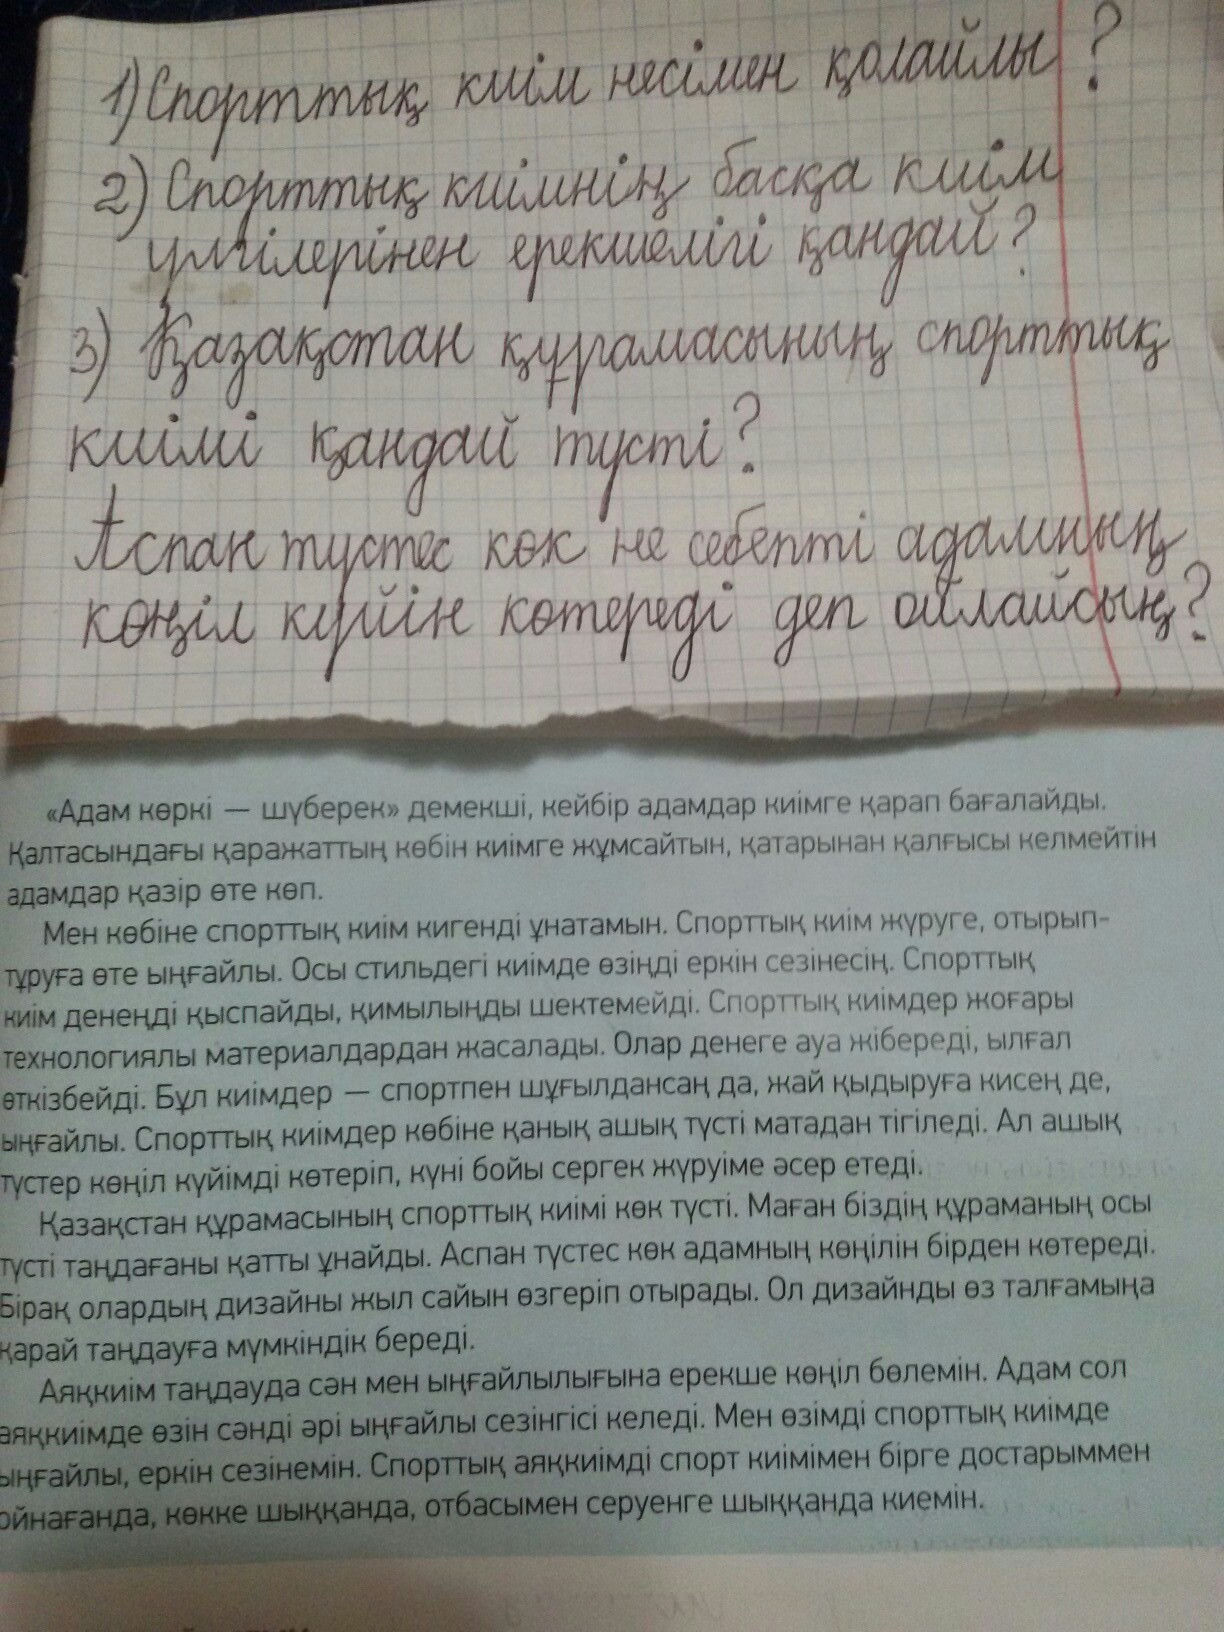 1) Спорттық киім несімен қолайлы?
2) Спорттық киімнің басқа киім
үлгілерінен ерекшелігі қандай?
3) Қазақстан құрамасының спорттық
киімі қандай түсті?
Аспан түстес көк не себепті адамның
көңіл күйін көтереді деп ойлайсың?
«Адам көркі — шүберек» демекші, кейбір адамдар киімге қарап бағалайды.
Қалтасындағы қаражаттың көбін киімге жұмсайтын, қатарынан қалғысы келмейтін
адамдар қазір өте көп.
Мен көбіне спорттық киім кигенді ұнатамын. Спорттық киім жүруге, отырып-
тұруға өте ыңғайлы. Осы стильдегі киімде өзіңді еркін сезінесің. Спорттық
киім денеңді қыспайды, қимылыңды шектемейді. Спорттық киімдер жоғары
технологиялы материалдардан жасалады. Олар денеге ауа жібереді, ылғал
өткізбейді. Бұл киімдер — спортпен шұғылдансаң да, жай қыдыруға кисең де,
ыңғайлы. Спорттық киімдер көбіне қанық ашық түсті матадан тігіледі. Ал ашық
түстер көңіл күйімді көтеріп, күні бойы сергек жүруіме әсер етеді.
Қазақстан құрамасының спорттық киімі көк түсті. Маған біздің құраманың осы
түсті таңдағаны қатты ұнайды. Аспан түстес көк адамның көңілін бірден көтереді.
Бірақ олардың дизайны жыл сайын өзгеріп отырады. Ол дизайнды өз талғамыңа
қарай таңдауға мүмкіндік береді.
Аяқкиім таңдауда сән мен ыңғайлылығына ерекше көңіл бөлемін. Адам сол
аяқкиімде өзін сәнді әрі ыңғайлы сезінгісі келеді. Мен өзімді спорттық киімде
ыңғайлы, еркін сезінемін. Спорттық аяқкиімді спорт киімімен бірге достарыммен
ойнағанда, көкке шыққанда, отбасымен серуенге шыққанда киемін.